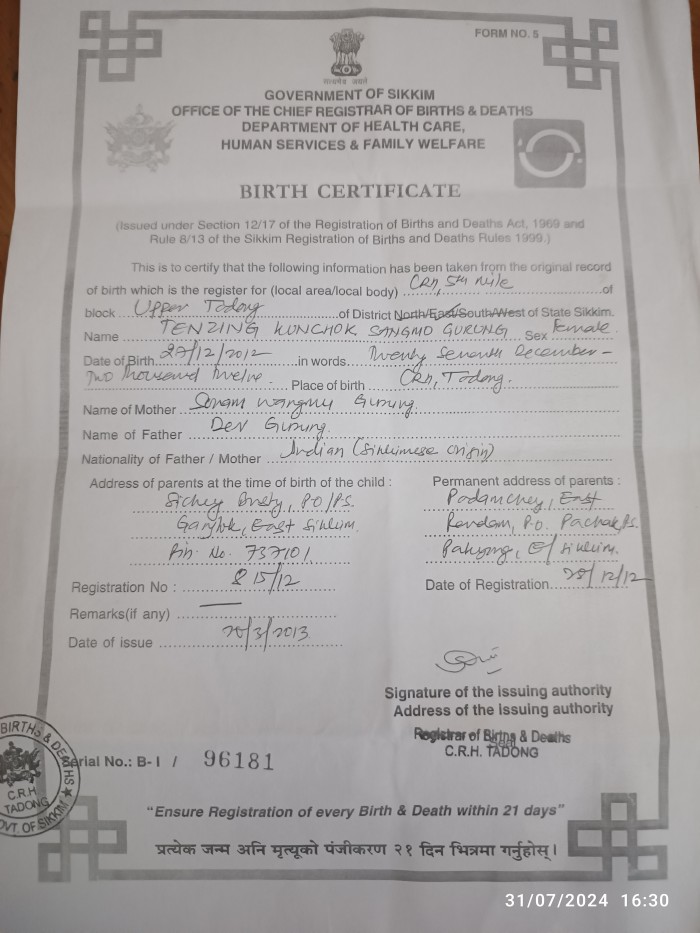 FORM NO. 5
सत्यमेव जयते
GOVERNMENT OF SIKKIM
OFFICE OF THE CHIEF REGISTRAR OF BIRTHS & DEATHS
DEPARTMENT OF HEALTH CARE,
HUMAN SERVICES & FAMILY WELFARE
BIRTH CERTIFICATE
(Issued under Section 12/17 of the Registration of Births and Deaths Act, 1969 and
Rule 8/13 of the Sikkim Registration of Births and Deaths Rules 1999.)
This is to certify that the following information has been taken from the original record
of birth which is the register for (local area/local body) CRH, 5th Mile of
block Upper Tadong of District North/East/South/West of State Sikkim.
Name TENZING KUNCHOK SANGMO GURUNG Sex Female.
Date of Birth 27/12/2012 in words Twenty Seventh December-
Two thousand twelve. Place of birth CRH, Tadong.
Name of Mother Sonam Wangmu Gurung.
Name of Father Dev Gurung.
Nationality of Father / Mother Indian (Sikkimese origin)
Address of parents at the time of birth of the child :
Sichey Busty, P.O/P.S.
Gangtok, East Sikkim.
Pin No. 737101.
Permanent address of parents :
Padamchey, East
P.O. Pachak, P.S.
Pakyong, E/Sikkim.
Registration No : 815/12
Date of Registration 28/12/12
Remarks(if any) —
Date of issue /3/2013
Signature of the issuing authority
Address of the issuing authority
Registrar of Births & Deaths
C.R.H. TADONG
BIRTHS & DEATHS
C.R.H.
TADONG
GOVT. OF SIKKIM
Serial No.: B- I / 96181
“Ensure Registration of every Birth & Death within 21 days”
प्रत्येक जन्म अनि मृत्यूको पंजीकरण २१ दिन भित्रमा गर्नुहोस्।
31/07/2024 16:30